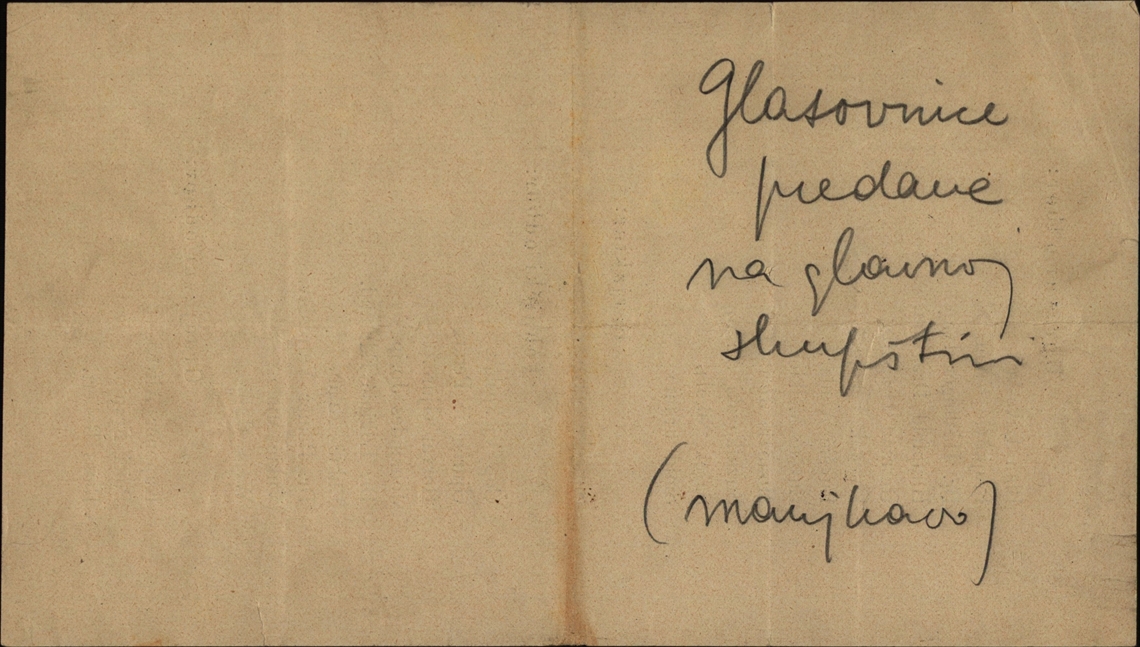 Glasovnice
predane
na glavnoj
skupštini
(manjkavo)